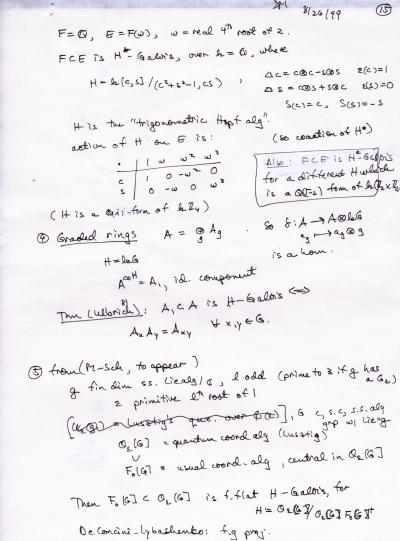 8/26/99 (15)
F = Q, E = F(ω), ω = real 4th root of 2.
F ⊂ E is H*-Galois, over k = Q, where
H = k[c,s]/(c²+s²-1, cs), Δc = c⊗c - s⊗s ε(c)=1
Δs = c⊗s + s⊗c ε(s)=0
S(c)=c, S(s)=-s
H is the "trigonometric Hopf alg".
action of H on E is: (so coaction of H*)
· | 1 ω ω² ω³
c | 1 0 -ω² 0
s | 0 -ω 0 ω³
Also: F ⊂ E is H*-Galois
for a different H which
is a Q[√-2] form of k(Z₂×Z₂)
(H is a Q(i)-form of kZ₄)
④ Graded rings A = ⊕g Ag. So δ: A → A⊗kG
ag ↦ ag⊗g
H = kG is a hom.
A^coH = A₁, id. component
Thm (Ulbrich): A₁ ⊂ A is H-Galois ⟺
AxAy = Axy ∀ x,y ∈ G.
⑤ from (M-Sch, to appear)
g fin dim ss. Lie alg/C, l odd (prime to 3 if g has a G₂)
ε primitive lth root of 1
G c, s.c, s.s. alg
grp w/ Lie g
Oε[G] = quantum coord alg (Lusztig)
∪
F₀[G] = usual coord. alg, central in Oε[G]
Then F₀[G] ⊂ Oε[G] is f.flat H-Galois, for
H = Oε[G]/Oε[G]F₀[G]⁺
DeConcini-Lyubashenko: f.g proj.